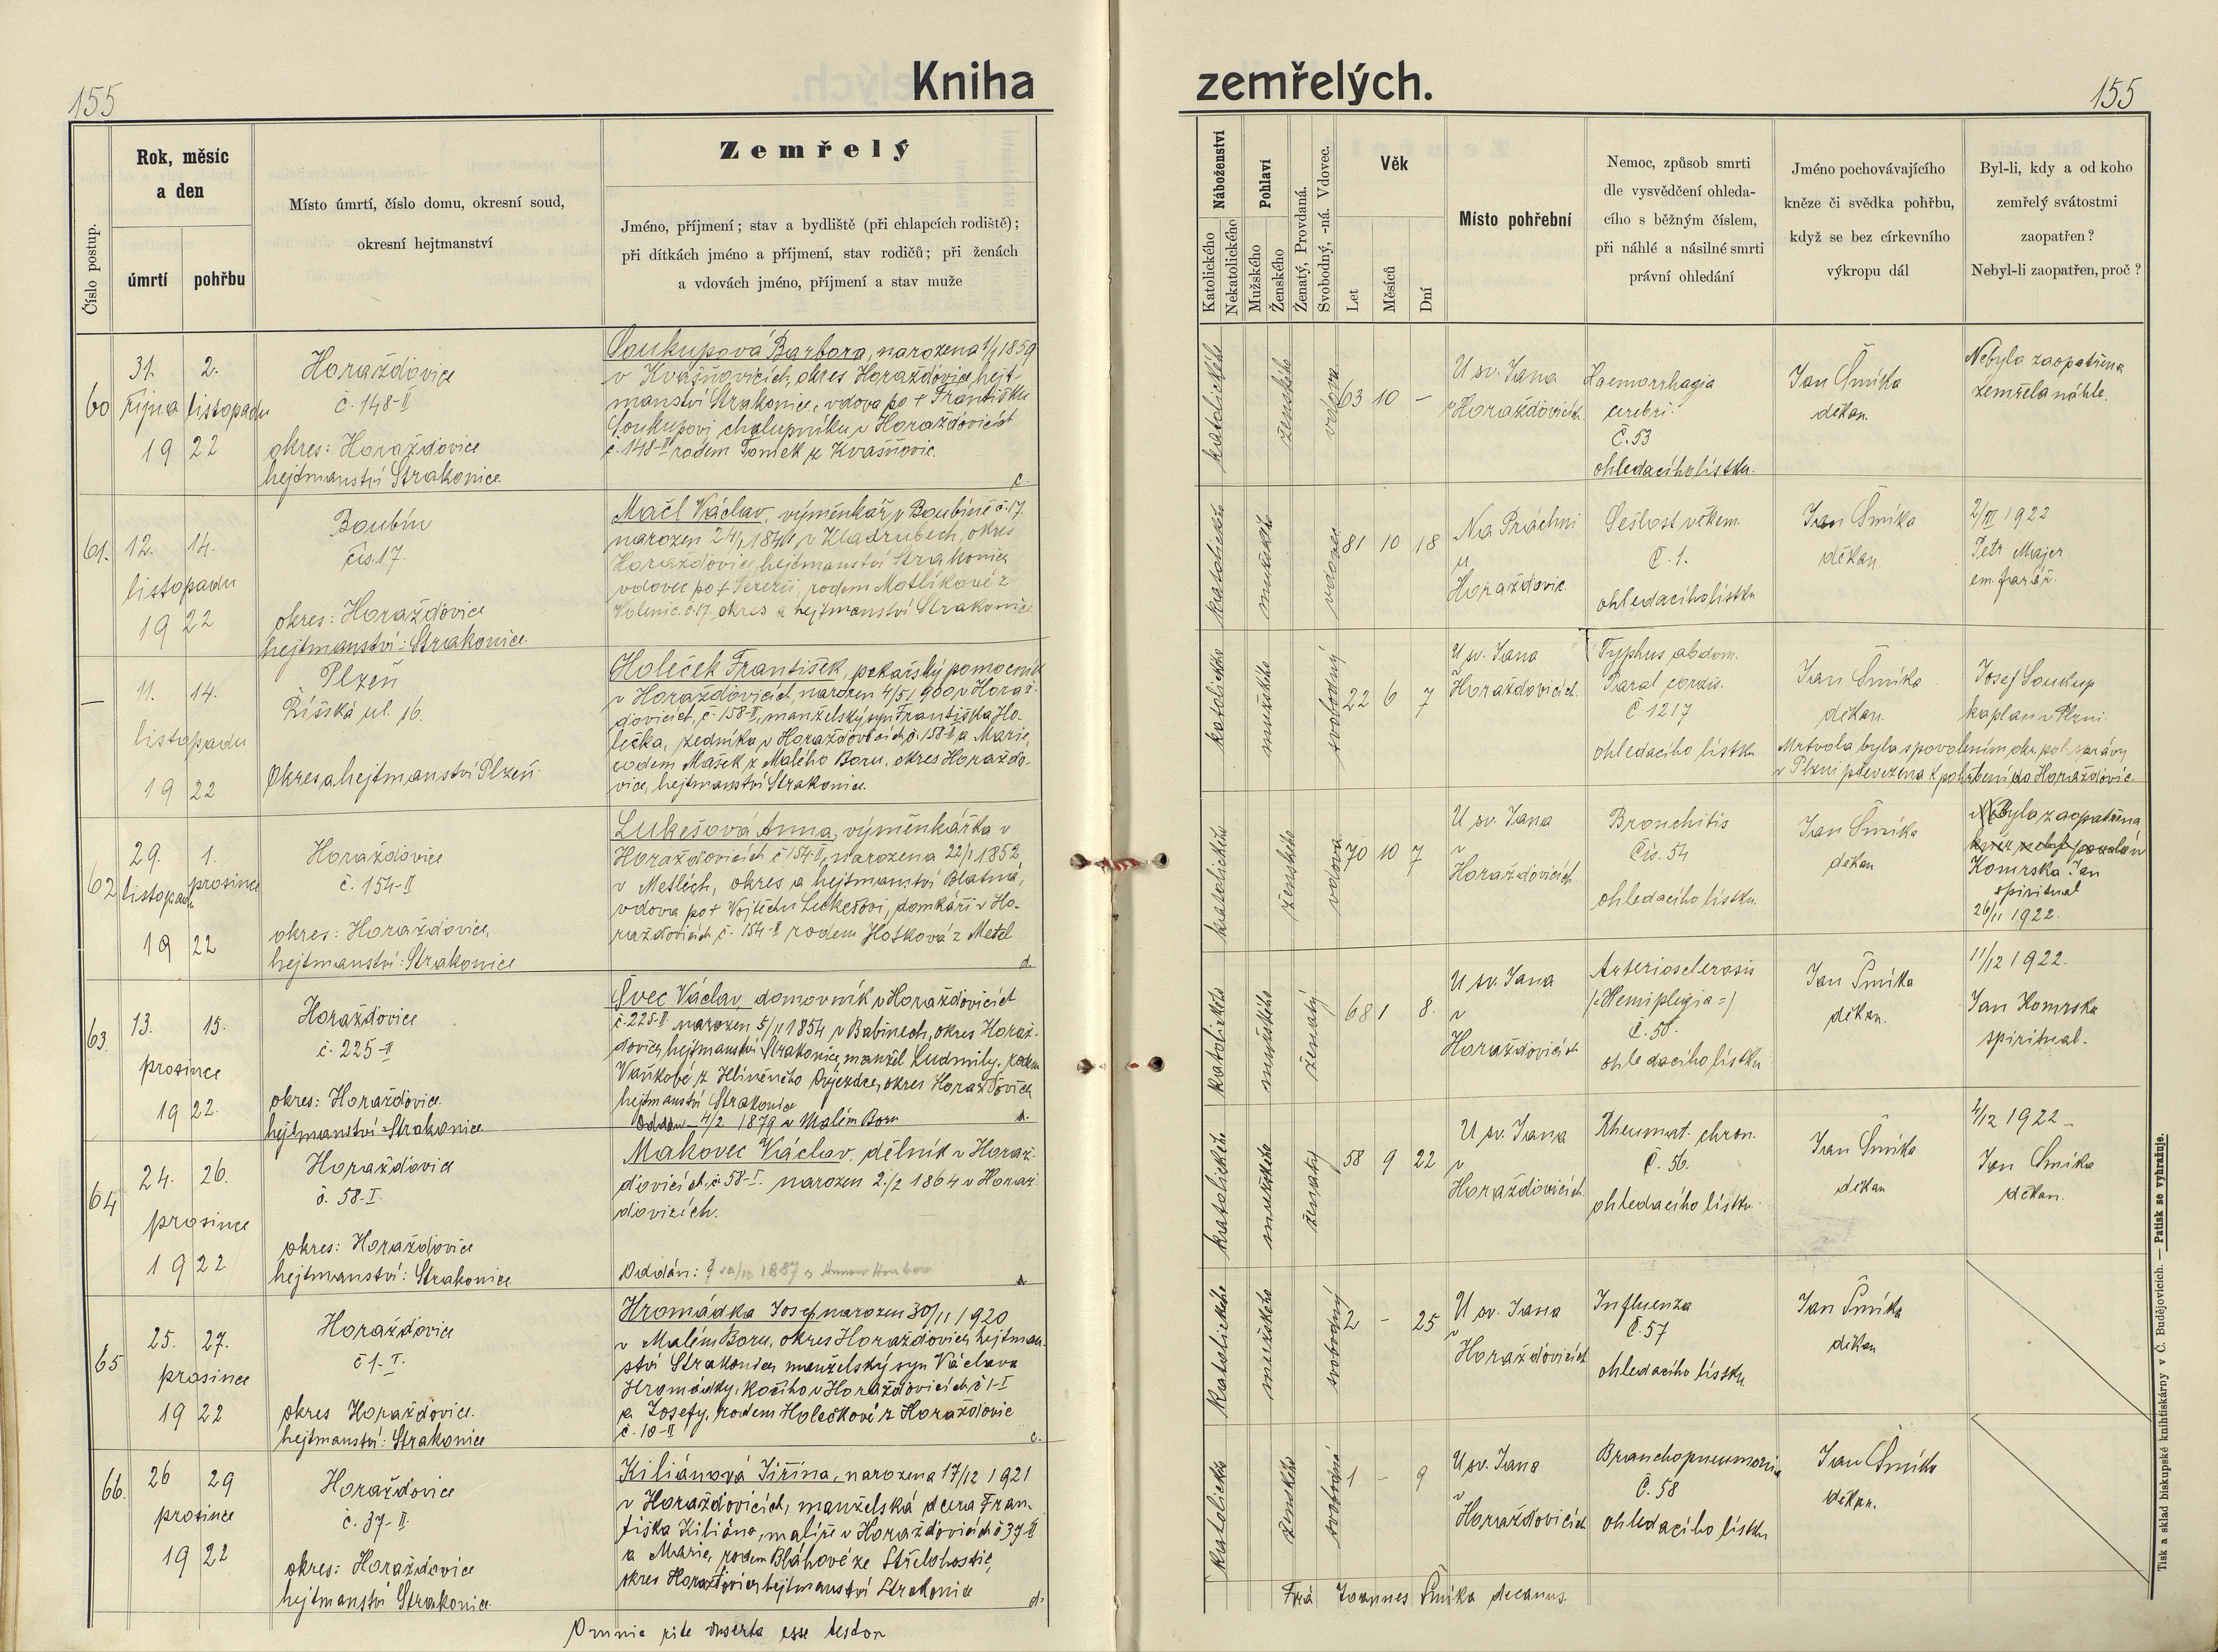 155
Kniha
zemřelých.
155
Číslo postup.
Rok, měsíc
a den
úmrtí
pohřbu
Místo úmrtí, číslo domu, okresní soud,
okresní hejtmanství
Zemřelý
Jméno, příjmení; stav a bydliště (při chlapcích rodiště);
při dítkách jméno a příjmení, stav rodičů; při ženách
a vdovách jméno, příjmení a stav muže
Náboženství
Katolického
Nekatolického
Pohlaví
Mužského
Ženského
Ženatý, Provdaná.
Svobodný, -ná. Vdovec.
Věk
Let
Měsíců
Dní
Místo pohřební
Nemoc, způsob smrti
dle vysvědčení ohleda-
cího s běžným číslem,
při náhlé a násilné smrti
právní ohledání
Jméno pochovávajícího
kněze či svědka pohřbu,
když se bez církevního
výkropu dál
Byl-li, kdy a od koho
zemřelý svátostmi
zaopatřen?
Nebyl-li zaopatřen, proč?
60
31. 2.
října listopadu
19 22
Horažďovice
č. 148-II
okres: Horažďovice
hejtmanství Strakonice
Soukupová Barbora, narozena 1/1 1859
v Kvášňovicích, okres Horažďovice, hejt-
manství Strakonice, vdova po † Františku
Soukupovi chalupníku v Horažďovicích
č. 148-II rodem Tomek z Kvášňovic.
č.
katolického
ženského
vdova
63 10 –
U sv. Jana
v Horažďovicích
Haemorrhagia
cerebri.
Č. 53
ohledacího lístku.
Jan Šmíka
děkan.
Nebyla zaopatřena
zemřela náhle.
61.
12. 14.
listopadu
19 22
Boubín
čís. 17.
okres: Horažďovice
hejtmanství: Strakonice.
Mačl Václav, výměnkář v Boubíně č. 17.
narozen 24/1 1841 v Kladrubech, okres
Horažďovice, hejtmanství Strakonice
vdovec po † Terezii, rodem Motlíkové z
Volenic č. 17 okres a hejtmanství Strakonice
katolického
mužského
vdovec
81 10 18
Na Práchni
u
Horažďovic.
Sešlost věkem.
Č. 1.
ohledacího lístku
Jan Šmíka
děkan
2/XI 1922
Petr Majer
em. farář.
–
11. 14.
listopadu
19 22
Plzeň
Říšská ul. 16.
Okres a hejtmanství Plzeň.
Holeček František, pekařský pomocník
v Horažďovicích, narozen 4/5 1900 v Horaž-
ďovicích, č. 158-II, manželský syn Františka Ho-
lečka, zedníka v Horažďovicích č. 158-II a Marie,
rodem Mašek z Malého Boru, okres Horažďo-
vice, hejtmanství Strakonice.
katolického
mužského
svobodný
22 6 7
U sv. Jana
v Horažďovicích.
Typhus abdom.
Paral cordis.
Č 1217
ohledacího lístku
Jan Šmíka
děkan.
Josef Soukup
kaplan v Plzni.
Mrtvola byla s povolením okr. pol. správy
v Plzni převezena k pohřbení do Horažďovic
62
29. 1.
listopadu prosince
19 22
Horažďovice
č. 154-II
okres: Horažďovice,
hejtmanství: Strakonice
Lukešová Anna, výměnkářka v
Horažďovicích č 154-II, narozena 22/1 1852
v Metlích, okres a hejtmanství Blatná,
vdova po † Vojtěchu Lukešovi, domkáři v Ho-
ražďovicích č. 154-II rodem Hošková z Metel
d.
katolického
ženského
vdova
70 10 7
U sv. Jana
v
Horažďovicích
Bronchitis
Čís. 54
ohledacího lístku.
Jan Šmíka
děkan
Byla zaopatřena
Komrska Jan
spirituál
26/11 1922.
63.
13. 15.
prosince
19 22.
Horažďovice
č. 225-II
okres: Horažďovice
hejtmanství Strakonice
Švec Václav, domovník v Horažďovicích
č. 225-II narozen 5/11 1854 v Babinech, okres Horaž-
ďovice, hejtmanství Strakonice, manžel Ludmily, rodem
Vaňkové z Hliněného Újezdce, okres Horažďovice
hejtmanství Strakonice
Oddán 4/2 1879 v Malém Boru
katolického
mužského
ženatý
68 1 8.
U sv. Jana
v
Horažďovicích
Arteriosclerosis
/=Hemiplegia=/
ohledacího lístku
Jan Šmíka
děkan.
11/12 1922.
Jan Komrska
spirituál.
64
24. 26.
prosince
19 22
Horažďovice
č. 58-I.
okres: Horažďovice
hejtmanství: Strakonice
Makovec Václav, dělník v Horaž-
ďovicích č. 58-I. narozen 2./2 1864 v Horaž-
ďovicích.
Oddán: 1887
katolického
mužského
ženatý
58 9 22
U sv. Jana
v
Horažďovicích
Rheumat. chron.
Č. 56.
ohledacího lístku
Jan Šmíka
děkan
4/12 1922
Jan Šmíka
děkan.
65
25. 27.
prosince
19 22
Horažďovice
č 1-I.
okres Horažďovice.
hejtmanství: Strakonice
Hromádka Josef, narozen 30/11 1920
v Malém Boru, okres Horažďovice, hejtman-
ství Strakonice, manželský syn Václava
Hromádky, kočího v Horažďovicích č 1-I
a Josefy, rodem Holečkové z Horažďovic
č. 10-II
č.
katolického
mužského
svobodný
2 – 25
U sv. Jana
v
Horažďovicích
Influenza
Č. 57
ohledacího lístku
Jan Šmíka
děkan
66.
26 29
prosince
19 22
Horažďovice
č. 37-II.
okres: Horažďovice
hejtmanství Strakonice.
Kiliánová Jiřina, narozena 17/12 1921
v Horažďovicích, manželská dcera Fran-
tiška Kiliána, malíře v Horažďovicích č 37-II
a Marie, rodem Bláhové ze Střelohostic,
okres Horažďovice, hejtmanství Strakonice
d.
katolického
ženského
svobodná
1 – 9
U sv. Jana
v
Horažďovicích
Bronchopneumonia
Č. 58
ohledacího lístku
Jan Šmíka
děkan.
Omnia rite inserta esse testor
Joannes Šmíka decanus.
Tisk a sklad biskupské knihtiskárny v Č. Budějovicích. — Patisk se vyhražuje.